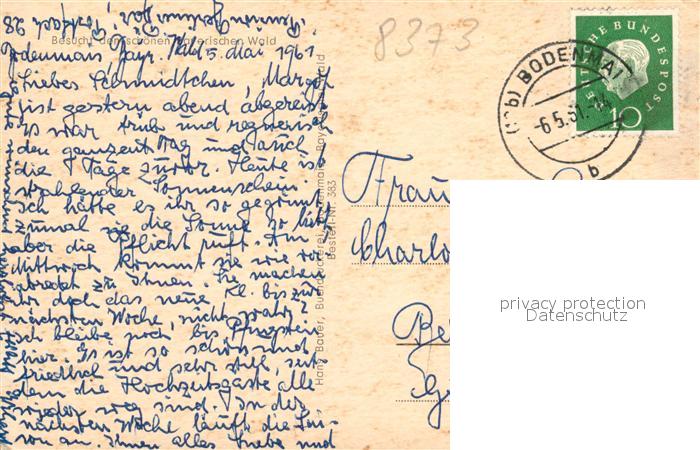 Pension
Postfach 28
Besucht den schönen Bayerischen Wald
Bodenmais, Bayr. Wald, 5. Mai 1961.
Liebes Schmidtchen, Margot
ist gestern abend abgereist
Es war trüb und regnerisch
den ganzen Tag und auch
die Tage zuvor. Heute ist
strahlender Sonnenschein
Ich hätte es ihr so gegönnt
zumal sie die Sonne so liebt
aber die Pflicht ruft. Am
Mittwoch kommt sie wie ver
abredet zu Ihnen. Sie machen
ihr doch das neue Kl. bis zur
nächsten Woche, nicht wahr?
Ich bleibe noch bis Pfingsten
hier. Es ist so schön und
friedlich und sehr still, seit
dem die Hochzeitsgäste alle
wieder weg sind. In der
nächsten Woche läuft die Sai-
son an. Ihnen alles Liebe und
Hans Bauer, Buchdruckerei, Bodenmais, Bayer. Wald
Bestell-Nr. 383
8373
(13b) BODENMAIS
-6.5.61.-
b
DEUTSCHE BUNDESPOST
10
Frau
Charlo
Be
privacy protection
Datenschutz